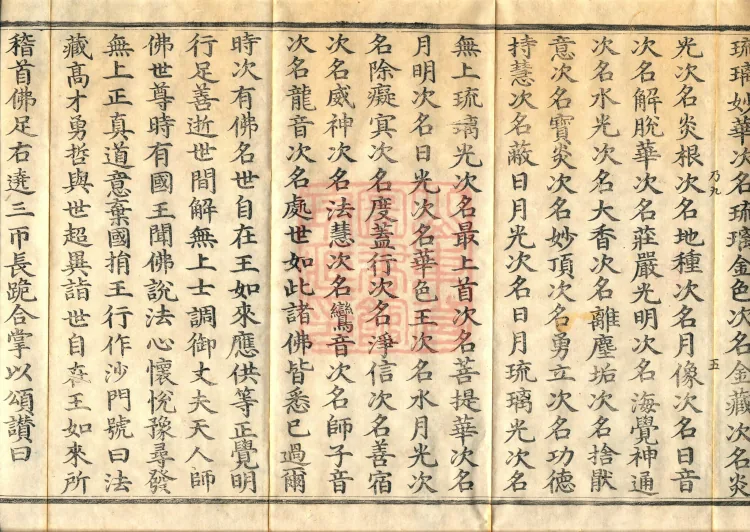 琉璃妙華次名琉璃金色次名金藏次名炎
乃九
五
光次名炎根次名地種次名月像次名日音
次名解脫華次名莊嚴光明次名海覺神通
次名水光次名大香次名離塵垢次名捨猒
意次名寶炎次名妙頂次名勇立次名功德
持慧次名蔽日月光次名日月琉璃光次名
無上琉璃光次名最上首次名菩提華次名
月明次名日光次名華色王次名水月光次
名除癡㝠次名度蓋行次名淨信次名善宿
次名威神次名法慧次名鸞音次名師子音
次名龍音次名處世如此諸佛皆悉已過爾
時次有佛名世自在王如來應供等正覺明
行足善逝世間解無上士調御丈夫天人師
佛世尊時有國王聞佛說法心懷悅豫尋發
無上正真道意棄國捐王行作沙門號曰法
藏高才勇哲與世超異詣世自在王如來所
稽首佛足右遶三帀長跪合掌以頌讚曰